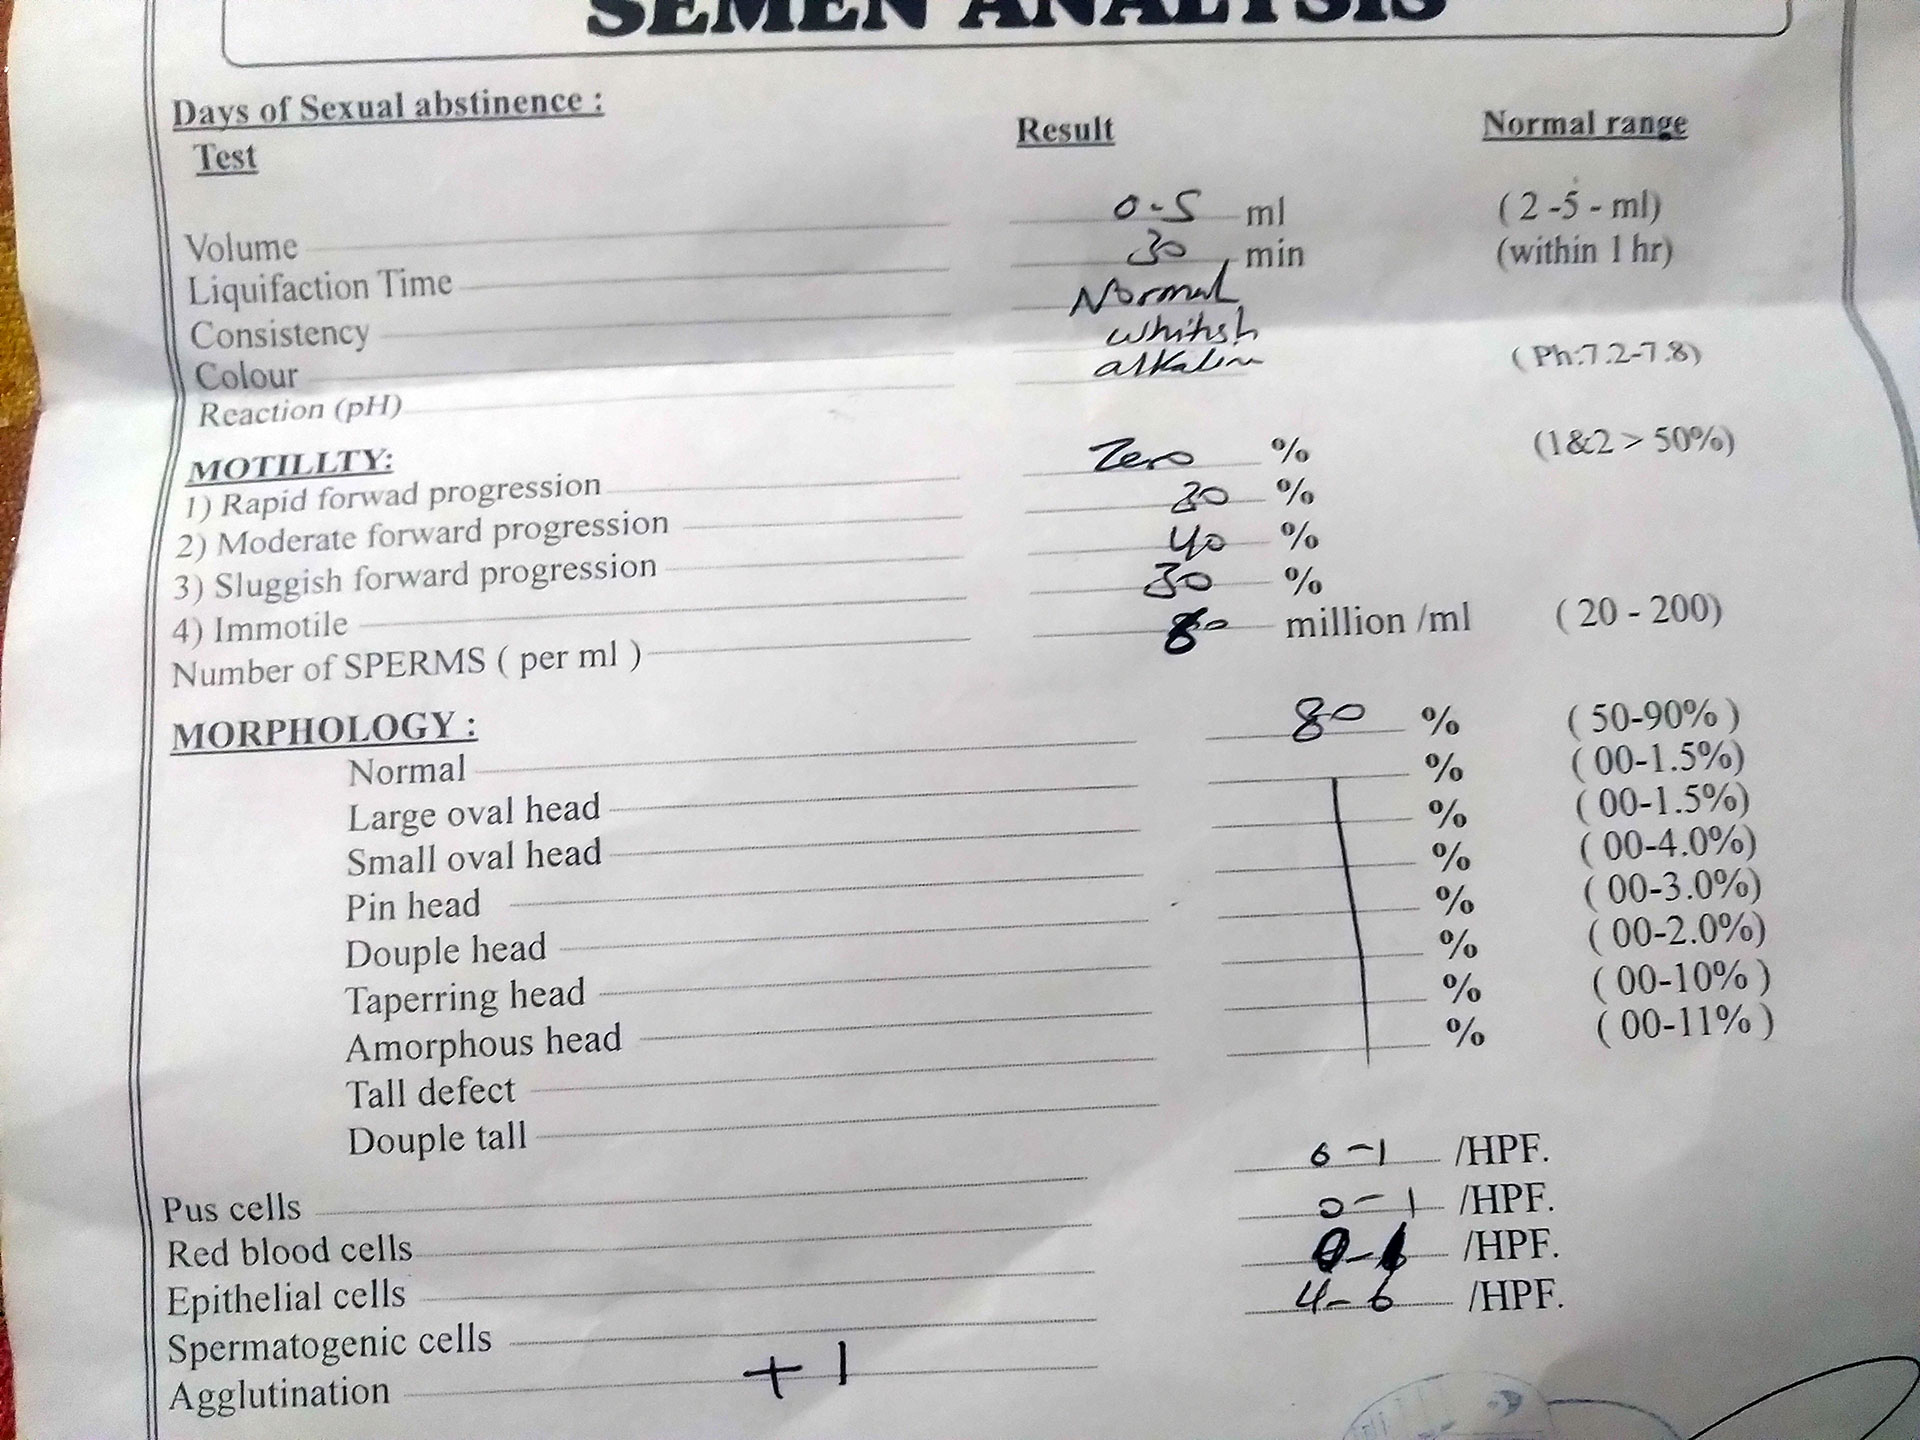 SEMEN ANALYSIS
Days of Sexual abstinence :
Test Result Normal range
Volume 0-5 ml ( 2 -5 - ml)
Liquifaction Time 30 min (within 1 hr)
Consistency Normal
Colour whitish
Reaction (pH) alkalin ( Ph:7.2-7.8)
MOTILLTY:
1) Rapid forwad progression Zero % (1&2 > 50%)
2) Moderate forward progression 30 %
3) Sluggish forward progression 40 %
4) Immotile 30 %
Number of SPERMS ( per ml ) 80 million /ml ( 20 - 200)
MORPHOLOGY :
Normal 80 % ( 50-90% )
Large oval head % ( 00-1.5%)
Small oval head % ( 00-1.5%)
Pin head % ( 00-4.0%)
Douple head % ( 00-3.0%)
Taperring head % ( 00-2.0%)
Amorphous head % ( 00-10% )
Tall defect % ( 00-11% )
Douple tall
Pus cells 0-1 /HPF.
Red blood cells 0-1 /HPF.
Epithelial cells /HPF.
Spermatogenic cells 4-6 /HPF.
Agglutination +1